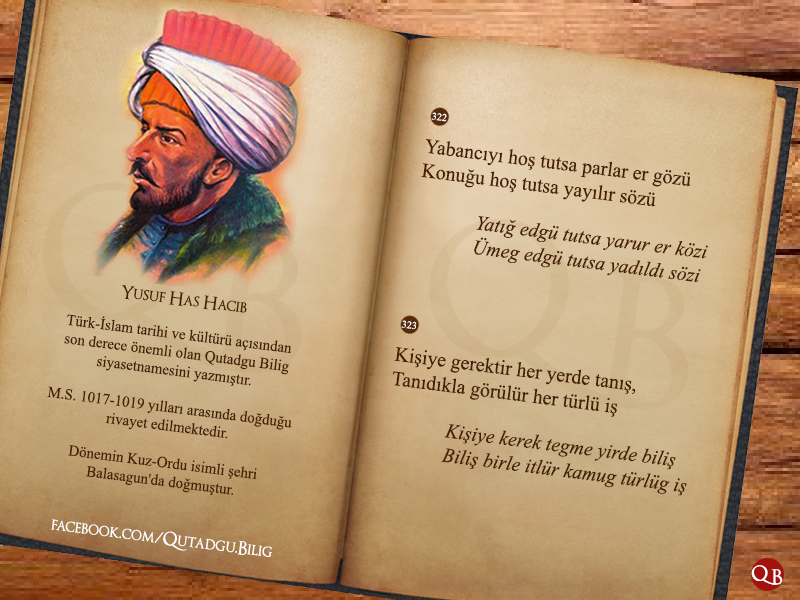 YUSUF HAS HACIB
Türk-İslam tarihi ve kültürü açısından
son derece önemli olan Qutadgu Bilig
siyasetnamesini yazmıştır.
M.S. 1017-1019 yılları arasında doğduğu
rivayet edilmektedir.
Dönemin Kuz-Ordu isimli şehri
Balasagun'da doğmuştur.
FACEBOOK.COM/QUTADGU.BILIG
322
Yabancıyı hoş tutsa parlar er gözü
Konuğu hoş tutsa yayılır sözü
Yatığ edgü tutsa yarur er közi
Ümeg edgü tutsa yadıldı sözi
323
Kişiye gerektir her yerde tanış,
Tanıdıkla görülür her türlü iş
Kişiye kerek tegme yirde biliş
Biliş birle itlür kamug türlüg iş
QB
QB
QB